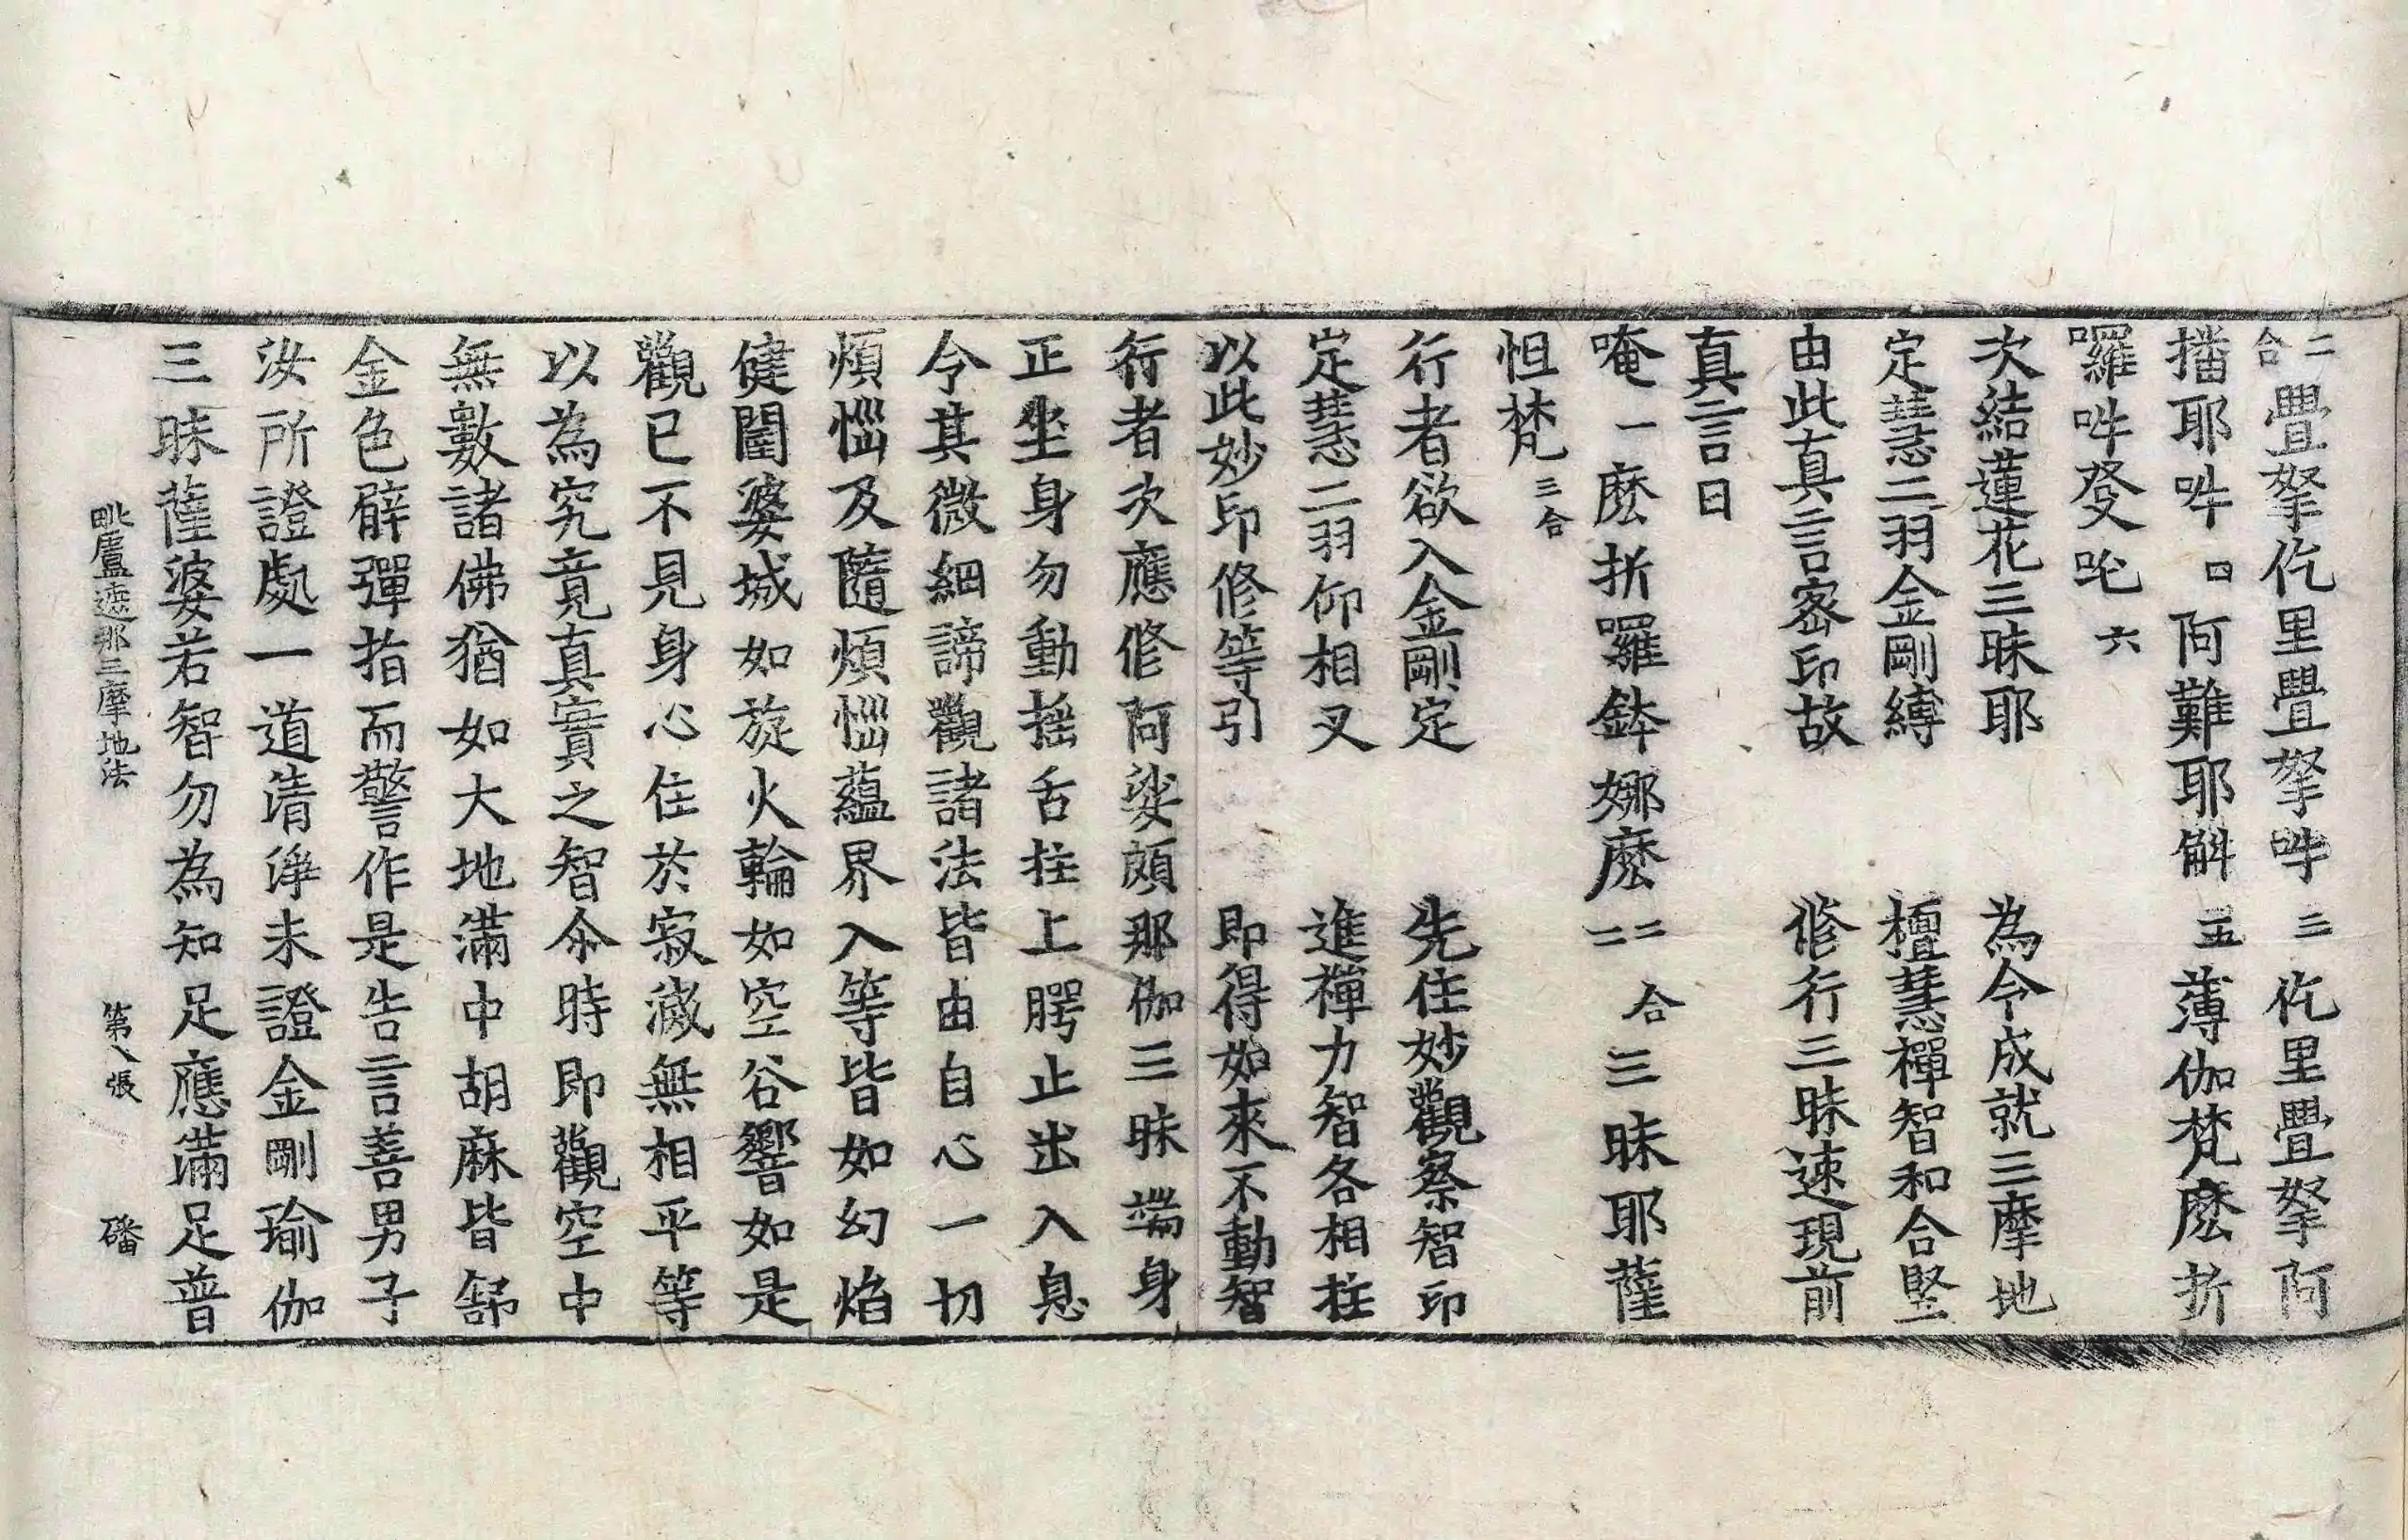 二合疊拏仡里疊拏吽三仡里疊拏阿
播耶吽四阿難耶斛五薄伽梵麽折
囉吽發吒六
次結蓮花三昧耶　為令成就三摩地
定慧二羽金剛縛　檀慧禪智和合竪
由此真言密印故　修行三昧速現前
真言曰
唵一麽折囉鉢娜麽二二合三昧耶薩
怛梵三合
行者欲入金剛定　先住妙觀察智印
定慧二羽仰相叉　進禪力智各相拄
以此妙印修等引　即得如來不動智
行者次應修阿娑頗那伽三昧端身
正坐身勿動搖舌拄上腭止出入息
令其微細諦觀諸法皆由自心一切
煩惱及隨煩惱蘊界入等皆如幻焰
健闥婆城如旋火輪如空谷響如是
觀已不見身心住於寂滅無相平等
以為究竟真實之智尒時即觀空中
無數諸佛猶如大地滿中胡麻皆舒
金色臂彈指而警作是告言善男子
汝所證處一道清淨未證金剛瑜伽
三昧薩婆若智勿為知足應滿足普
毗盧遮那三摩地法　第八張　磻